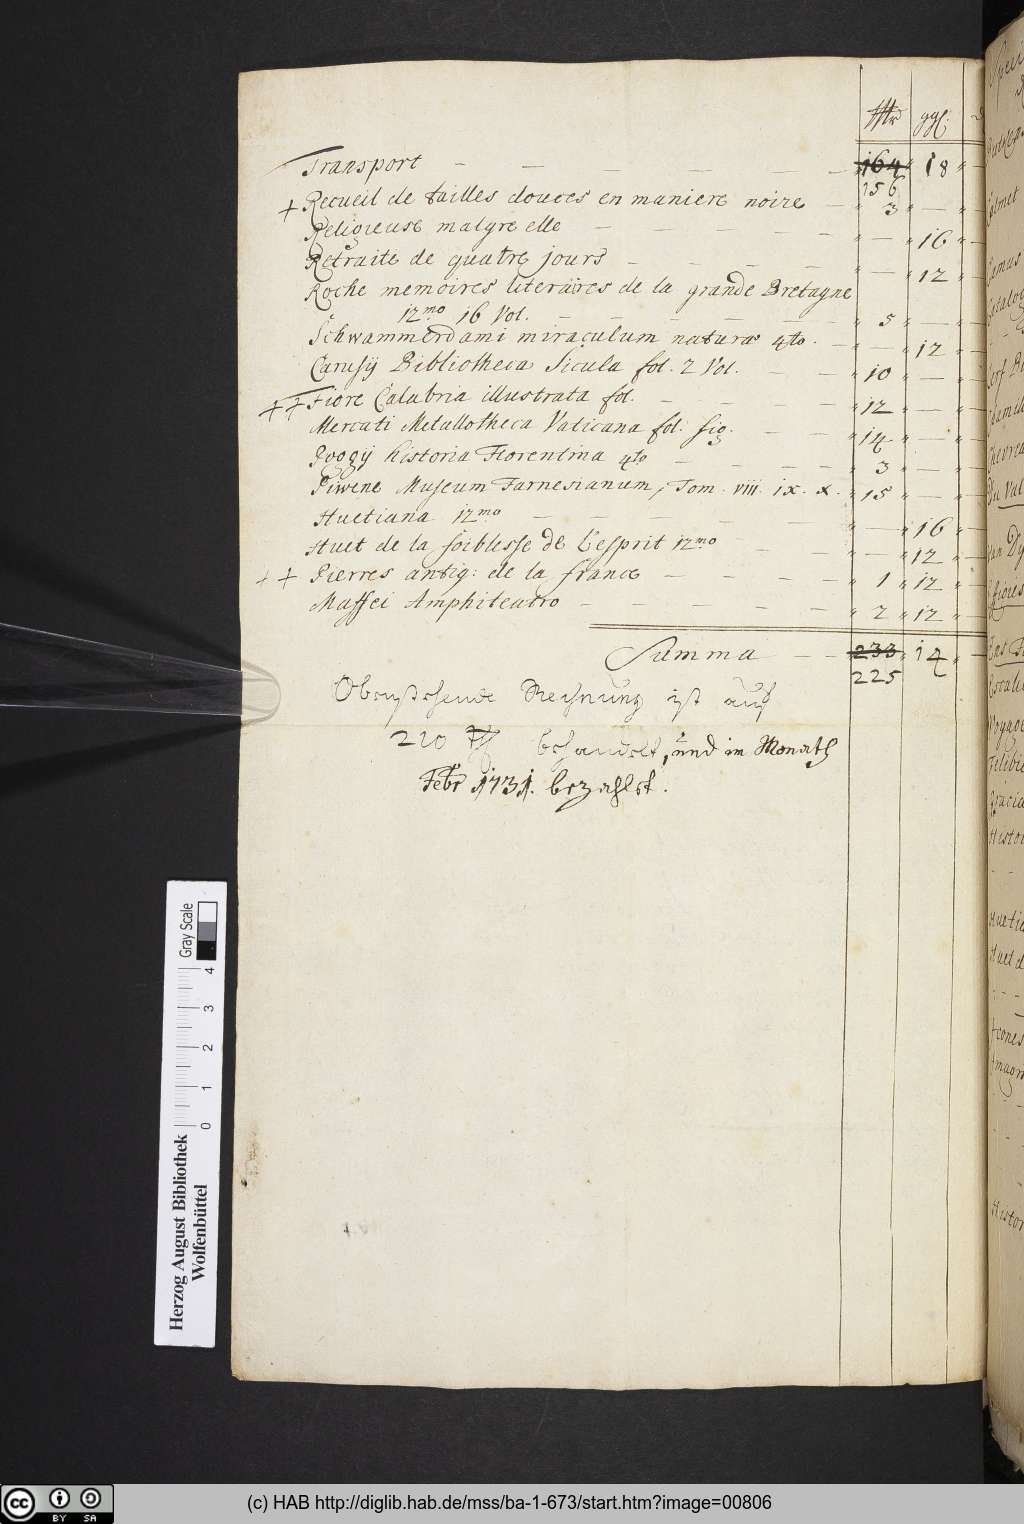 Thlr ggl.
Transport — — — — — — 164 " 18 "
156
+ Recueil de tailles douces en maniere noire — " 3 " — "
Religieuse malgre elle — — — — — " — " 16 "
Retraite de quatre jours — — — — " — " 12 "
Roche memoires literaires de la grande Bretagne
12mo 16 Vol. — — — — — — " 5 " — "
Schwammerdami miraculum naturæ 4to. — " — " 12 "
Carusij Bibliotheca Sicula fol. 2 Vol. — — " 10 " — "
++ Fiore Calabria illustrata fol. — — — — " 12 " — "
Mercati Metallotheca Vaticana fol. fig. — — " 14 " — "
Poggij historia Florentina 4to — — — — " 3 " — "
Piwene Museum Farnesianum, Tom. VIII. IX. X. " 15 " — "
Huetiana 12mo — — — — — — " — " 16 "
Huet de la foiblesse de l'esprit 12mo — — — " — " 12 "
++ Pierres antiq: de la france — — — — " 1 " 12 "
Maffei Amphiteatro — — — — — — " 2 " 12 "
Summa — — 233 " 14 "
225
Obenstehende Rechnung ist auf
220 Thlr behandelt, und im Monath
Febr 1731. bezahlt.
Herzog August Bibliothek
Wolfenbüttel
0 1 2 3 4
Gray Scale
cc BY SA
(c) HAB http://diglib.hab.de/mss/ba-1-673/start.htm?image=00806